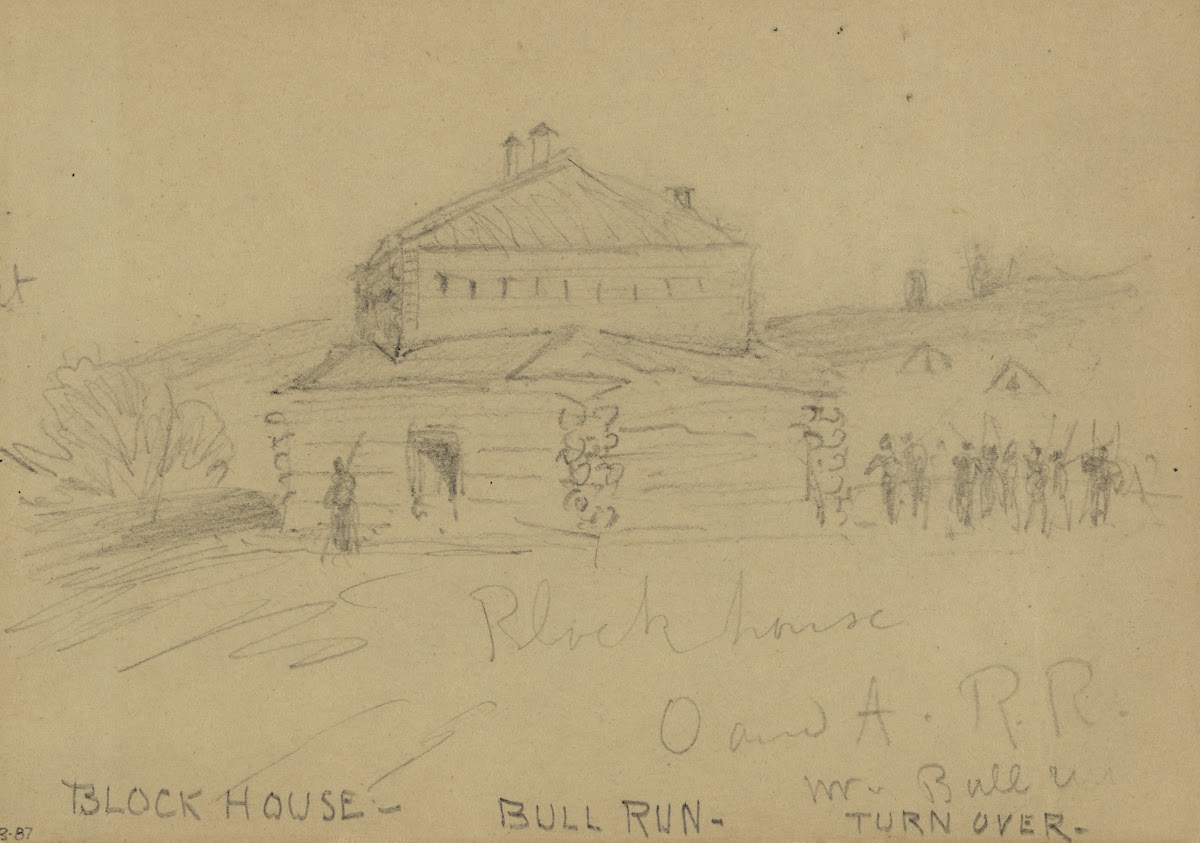 Block house
O and A. R.R.
nr. Bull
BLOCK HOUSE-
BULL RUN-
TURN OVER-
3-87